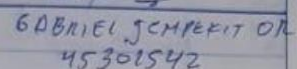 GABRIEL SEMPEKIT OR
45301542